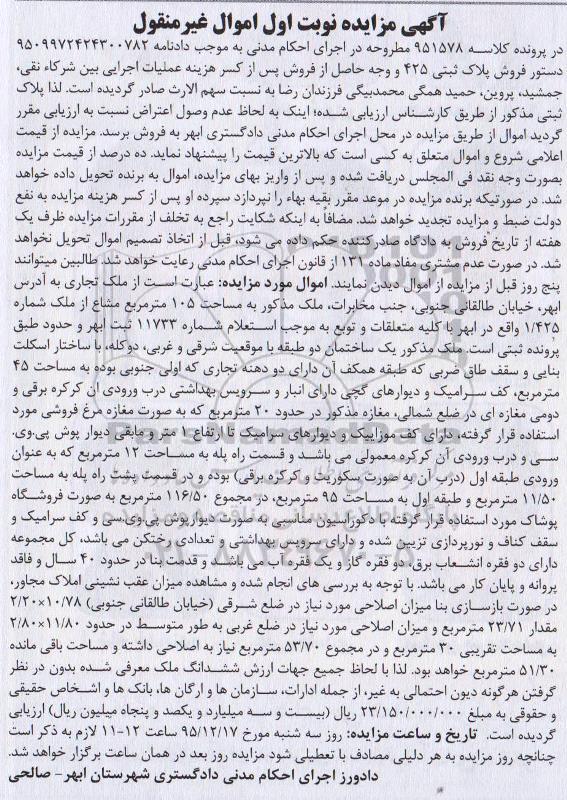 آگهی مزایده نوبت اول اموال غیرمنقول
در پرونده کلاسه ۹۵۱۵۷۸ مطروحه در اجرای احکام مدنی به موجب دادنامه ۹۵۰۹۹۷۲۴۲۴۳۰۰۷۸۲
دستور فروش پلاک ثبتی ۴۲۵ و وجه حاصل از فروش پس از کسر هزینه عملیات اجرایی بین شرکاء نقی،
جمشید، پروین، حمید همگی محمدبیگی فرزندان رضا به نسبت سهم الارث صادر گردیده است. لذا پلاک
ثبتی مذکور از طریق کارشناس ارزیابی شده؛ اینک به لحاظ عدم وصول اعتراض نسبت به ارزیابی مقرر
گردید اموال از طریق مزایده در محل اجرای احکام مدنی دادگستری ابهر به فروش برسد. مزایده از قیمت
اعلامی شروع و اموال متعلق به کسی است که بالاترین قیمت را پیشنهاد نماید. ده درصد از قیمت مزایده
بصورت وجه نقد فی المجلس دریافت شده و پس از واریز بهای مزایده، اموال به برنده تحویل داده خواهد
شد. در صورتیکه برنده مزایده در موعد مقرر بقیه بهاء را نپردازد سپرده او پس از کسر هزینه مزایده به نفع
دولت ضبط و مزایده تجدید خواهد شد. مضافا به اینکه شکایت راجع به تخلف از مقررات مزایده ظرف یک
هفته از تاریخ فروش به دادگاه صادرکننده حکم داده می شود، قبل از اتخاذ تصمیم اموال تحویل نخواهد
شد. در صورت عدم مشتری مفاد ماده ۱۳۱ از قانون اجرای احکام مدنی رعایت خواهد شد. طالبین میتوانند
پنج روز قبل از مزایده از اموال دیدن نمایند. اموال مورد مزایده: عبارت است از ملک تجاری به آدرس
ابهر، خیابان طالقانی جنوبی، جنب مخابرات، ملک مذکور به مساحت ۱۰۵ مترمربع مشاع از ملک شماره
۱/۴۲۵ واقع در ابهر با کلیه متعلقات و توبع به موجب استعلام شماره ۱۱۷۳۳ ثبت ابهر و حدود طبق
پرونده ثبتی است. ملک مذکور یک ساختمان دو طبقه با موقعیت شرقی و غربی، دوکله، با ساختار اسکلت
بنایی و سقف طاق ضربی که طبقه همکف آن دارای دو دهنه تجاری که اولی جنوبی بوده به مساحت ۴۵
مترمربع، کف سرامیک و دیوارهای گچی دارای انبار و سرویس بهداشتی درب ورودی ان کرکره برقی و
دومی مغازه ای در ضلع شمالی، مغازه مذکور در حدود ۲۰ مترمربع که به صورت مغازه مرغ فروشی مورد
استفاده قرار گرفته، دارای کف موزاییک و دیوارهای سرامیک تا ارتفاع ۱ متر و مابقی دیوار پوش پی.وی.
سی و درب ورودی آن کرکره معمولی می باشد و قسمت راه پله به مساحت ۱۲ مترمربع که به عنوان
ورودی طبقه اول (درب آن به صورت سکوریت و کرکره برقی) بوده و در قسمت پشت راه پله به مساحت
۱۱/۵۰ مترمربع و طبقه اول به مساحت ۹۵ مترمربع، در مجموع ۱۱۶/۵۰ مترمربع به صورت فروشگاه
پوشاک مورد استفاده قرار گرفته با دکوراسیون مناسبی به صورت دیوارپوش پی.وی.سی و کف سرامیک و
سقف کناف و نورپردازی تزیین شده و دارای سرویس بهداشتی و تعدادی رختکن می باشد، کل مجموعه
دارای دو فقره انشعاب برق، دو فقره گاز و یک فقره آب می باشد و قدمت بنا در حدود ۴۰ سال و فاقد
پروانه و پایان کار می باشد. با توجه به بررسی های انجام شده و مشاهده میزان عقب نشینی املاک مجاور،
در صورت بازسازی بنا میزان اصلاحی مورد نیاز در ضلع شرقی (خیابان طالقانی جنوبی) ۲/۲۰×۱۰/۷۸
مقدار ۲۳/۷۱ مترمربع و میزان اصلاحی مورد نیاز در ضلع غربی به طور متوسط در حدود ۲/۸۰×۱۱/۸۰
به مساحت تقریبی ۳۰ مترمربع و در مجموع ۵۳/۷۰ مترمربع نیاز به اصلاحی داشته و مساحت باقی مانده
۵۱/۳۰ مترمربع خواهد بود. لذا با لحاظ جمیع جهات ارزش ششدانگ ملک معرفی شده بدون در نظر
گرفتن هرگونه دیون احتمالی به غیر، از جمله ادارات، سازمان ها و ارگان ها، بانک ها و اشخاص حقیقی
و حقوقی به مبلغ ۲۳/۱۵۰/۰۰۰/۰۰۰ ریال (بیست و سه میلیارد و یکصد و پنجاه میلیون ریال) ارزیابی
گردیده است. تاریخ و ساعت مزایده: روز سه شنبه مورخ ۹۵/۱۲/۱۷ ساعت ۱۲-۱۱ لازم به ذکر است
چنانچه روز مزایده به هر دلیلی مصادف با تعطیلی شود مزایده روز بعد در همان ساعت برگزار خواهد شد.
دادورز اجرای احکام مدنی دادگستری شهرستان ابهر- صالحی